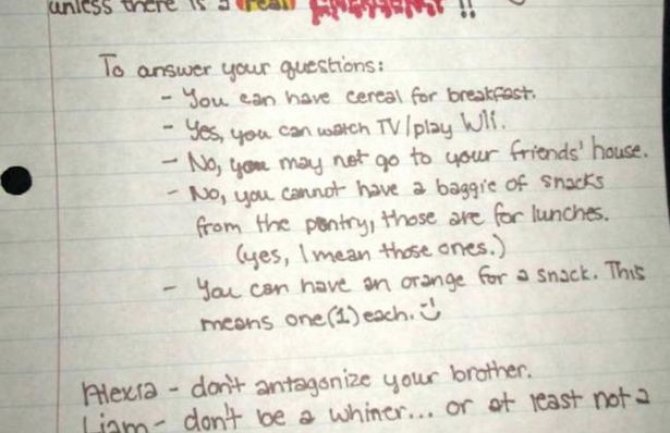 unless there is a real emergency!!
To answer your questions:
- You can have cereal for breakfast.
- Yes, you can watch TV/play Wii.
- No, you may not go to your friends' house.
- No, you cannot have a baggie of snacks
from the pantry, those are for lunches.
(yes, I mean those ones.)
- You can have an orange for a snack. This
means one (1) each. :)
Alexia - don't antagonize your brother.
Liam - don't be a whiner... or at least not a